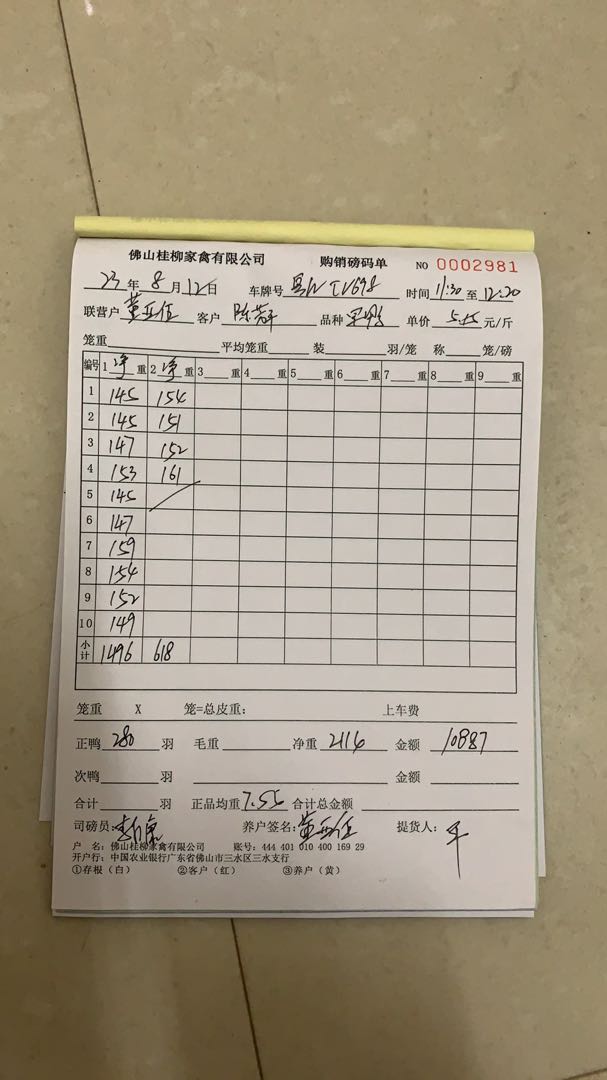 佛山桂柳家禽有限公司 购销磅码单 NO 0002981
23年8月12日 车牌号 时间 11:30 至 12:20
联营户 黄亚伍 客户 品种 单价 5.15 元/斤
笼重 平均笼重 装 羽/笼 称 笼/磅
编号 1 净 重 2 净 重 3 重 4 重 5 重 6 重 7 重 8 重 9 重
1 145 154
2 145 151
3 147 152
4 153 161
5 145
6 147
7 159
8 154
9 152
10 149
小计 1496 618
笼重 X 笼=总皮重: 上车费
正鸭 280 羽 毛重 净重 2116 金额 10887
次鸭 羽 金额
合计 羽 正品均重 7.55 合计总金额
司磅员: 养户签名: 黄亚伍 提货人: 平
户 名: 佛山桂柳家禽有限公司 账号: 444 401 010 400 169 29
开户行: 中国农业银行广东省佛山市三水区三水支行
①存根(白) ②客户(红) ③养户(黄)